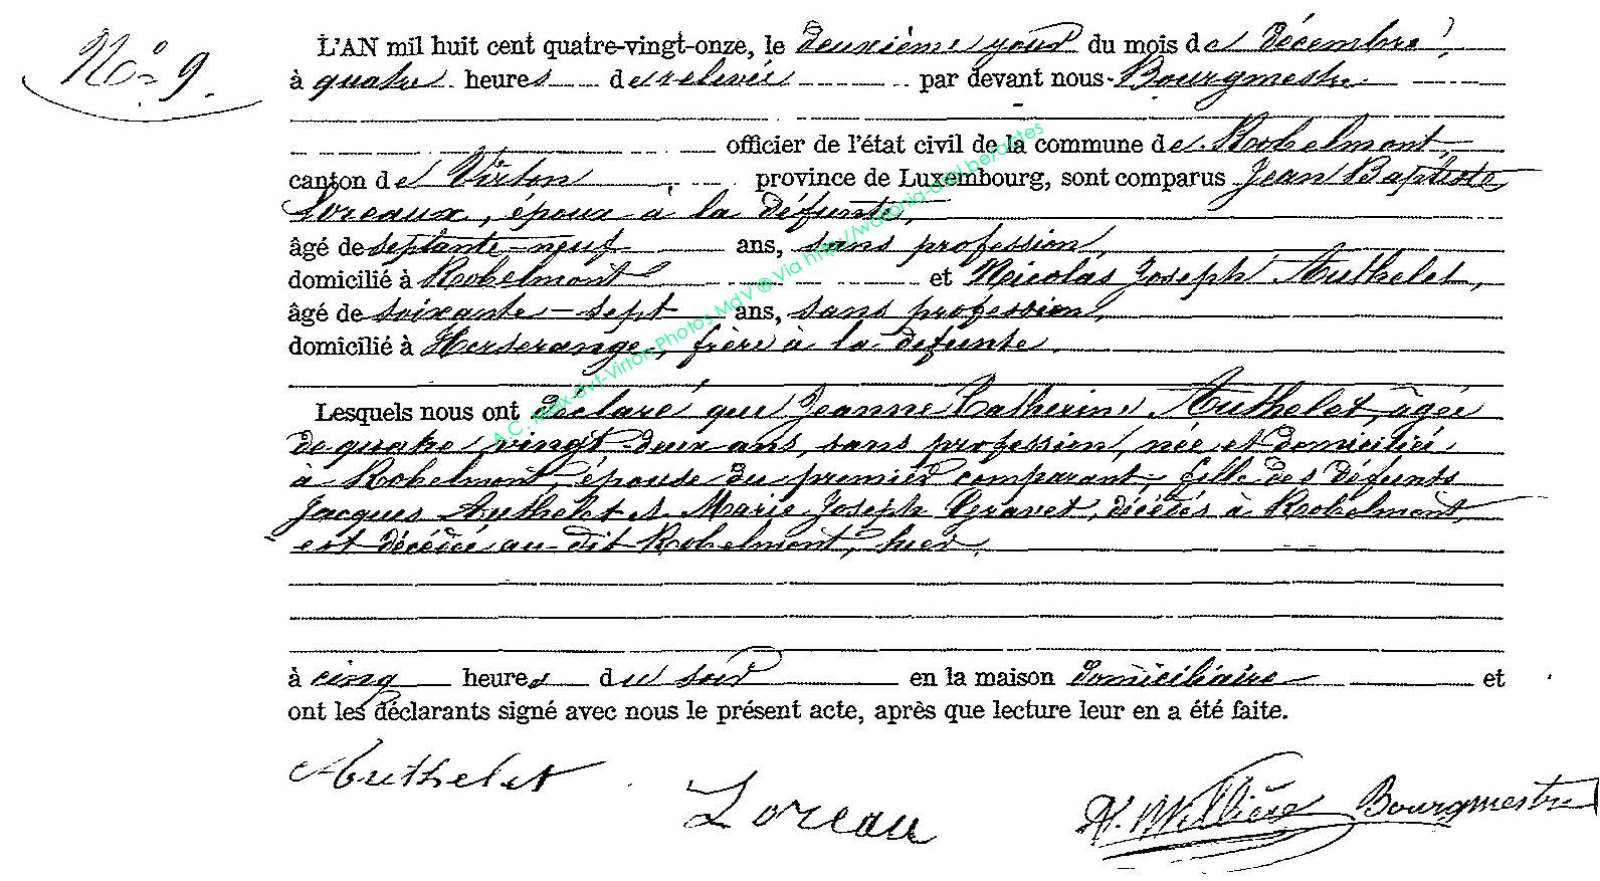 No 9.
L'AN mil huit cent quatre-vingt-onze, le deuxième jour du mois de Décembre,
à quatre heures de relevée par devant nous Bourgmestre
officier de l'état civil de la commune de Robelmont,
canton de Virton, province de Luxembourg, sont comparus Jean Baptiste
Loreaux, époux à la défunte,
âgé de septante-neuf ans, sans profession,
domicilié à Robelmont et Nicolas Joseph Authelet,
âgé de soixante-sept ans, sans profession,
domicilié à Herserange, frère à la défunte.
Lesquels nous ont déclaré que Jeanne Catherine Authelet, âgée
de quatre vingt-deux ans, sans profession, née et domiciliée
à Robelmont, épouse du premier comparant, fille des défunts
Jacques Authelet & Marie Joseph Gravet, décédés à Robelmont,
est décédée au dit Robelmont, hier,
à cinq heures du soir en la maison domiciliaire et
ont les déclarants signé avec nous le présent acte, après que lecture leur en a été faite.
Authelet Loreau Bourgmestre
A.C. Max-dvt-Virton Photos MdV @ Via http://wallonia-asbl.be/actes